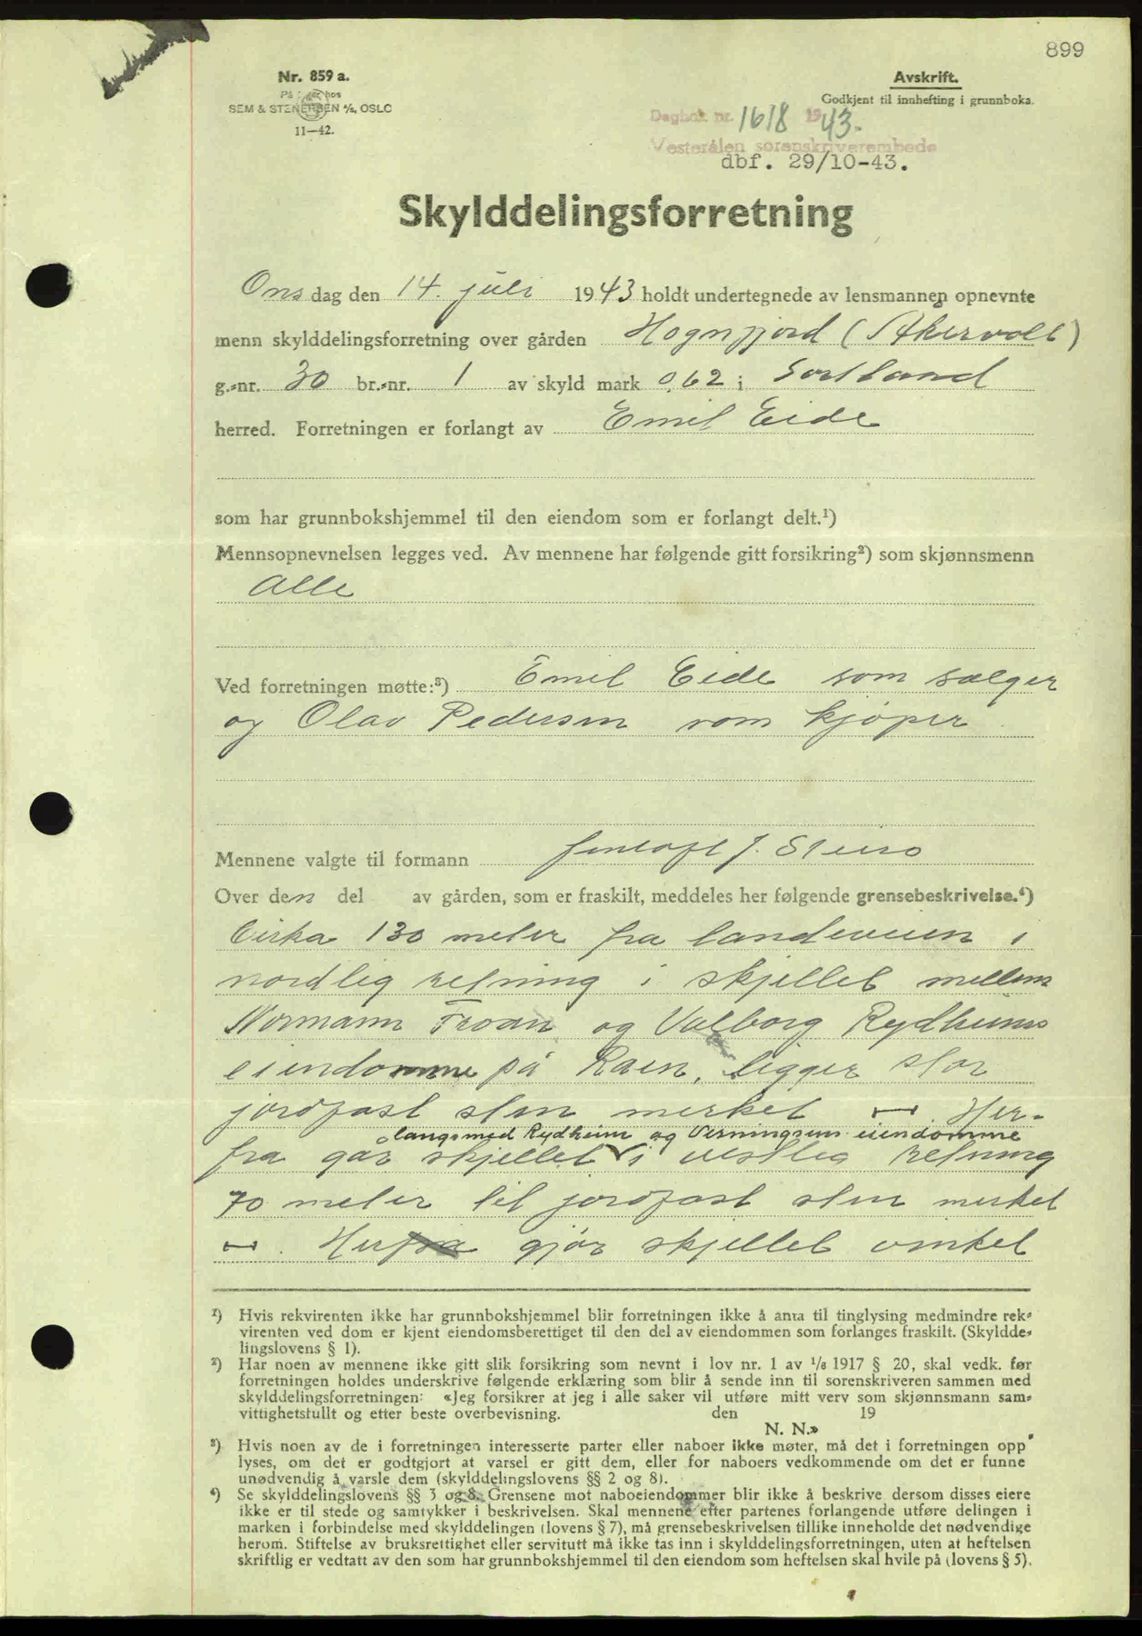 899
Nr. 859 a.
På lager hos
SEM & STENERSEN A/S, OSLO
11—42.
Avskrift.
Godkjent til innhefting i grunnboka.
Dagbok nr. 1618 1943.
Vesterålen sorenskriverembede
dbf. 29/10-43.
Skylddelingsforretning
Onsdag den 14. juli 1943 holdt undertegnede av lensmannen opnevnte
menn skylddelingsforretning over gården Hognfjord (Akervoll)
g.-nr. 30 br.-nr. 1 av skyld mark 0,62 i Sortland
herred. Forretningen er forlangt av Emil Eide
som har grunnbokshjemmel til den eiendom som er forlangt delt.¹)
Mennsopnevnelsen legges ved. Av mennene har følgende gitt forsikring²) som skjønnsmenn
Alle
Ved forretningen møtte:³) Emil Eide som sælger
og Olav Pedersen som kjøper
Mennene valgte til formann Jentoft J. Steiro
Over den del av gården, som er fraskilt, meddeles her følgende grensebeskrivelse.⁴)
Cirka 130 meter fra landeveien i
nordlig retning i skjellet mellem
Normann Troan og Valborg Rydheims
eiendomme på Raen, ligger stor
jordfast sten merket ⊢⊣. Her-
langsmed Rydheim og Verningsun eiendomme
fra går skjellet i vestlig retning
70 meter til jordfast sten merket
⊢⊣. Her gjør skjellet vinkel
¹) Hvis rekvirenten ikke har grunnbokshjemmel blir forretningen ikke å anta til tinglysing medmindre rek-
virenten ved dom er kjent eiendomsberettiget til den del av eiendommen som forlanges fraskilt. (Skyldde-
lingslovens § 1).
²) Har noen av mennene ikke gitt slik forsikring som nevnt i lov nr. 1 av 1/8 1917 § 20, skal vedk. før
forretningen holdes underskrive følgende erklæring som blir å sende inn til sorenskriveren sammen med
skylddelingsforretningen: «Jeg forsikrer at jeg i alle saker vil utføre mitt verv som skjønnsmann sam-
vittighetsfullt og etter beste overbevisning. den 19
N. N.»
³) Hvis noen av de i forretningen interesserte parter eller naboer ikke møter, må det i forretningen opp
lyses, om det er godtgjort at varsel er gitt dem, eller for naboers vedkommende om det er funne
unødvendig å varsle dem (skylddelingslovens §§ 2 og 8).
⁴) Se skylddelingslovens §§ 3 og 8. Grensene mot naboeiendommer blir ikke å beskrive dersom disses eiere
ikke er til stede og samtykker i beskrivelsen. Skal mennene efter partenes forlangende utføre delingen i
marken i forbindelse med skylddelingen (lovens § 7), må grensebeskrivelsen tillike inneholde det nødvendige
herom. Stiftelse av bruksrettighet eller servitutt må ikke tas inn i skylddelingsforretningen, uten at heftelsen
skriftlig er vedtatt av den som har grunnbokshjemmel til den eiendom som heftelsen skal hvile på (lovens § 5).